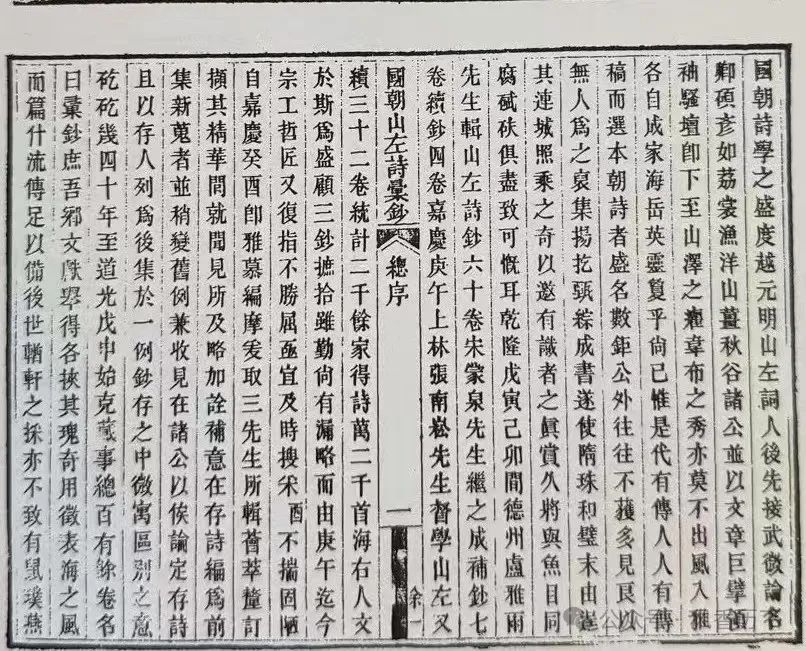 國朝詩學之盛度越元明山左詞人後先接武微論名
鄉碩彥如荔裳漁洋山薑秋谷諸公並以文章巨擘領
袖騷壇卽下至山澤之癯韋布之秀亦莫不出風入雅
各自成家海岳英靈夐乎尚已惟是代有傳人人有傳
稿而選本朝詩者盛名數鉅公外往往不獲多見良以
無人爲之裒集揚扢甄綜成書遂使隋珠和璧末由逞
其連城照乘之奇以邀有識者之眞賞久將與魚目同
腐碔砆俱盡致可慨耳乾隆戊寅己卯間德州盧雅雨
先生輯山左詩鈔六十卷宋蒙泉先生繼之成補鈔七
卷續鈔四卷嘉慶庚午上林張南崧先生督學山左又
國朝山左詩彙鈔 總序 一 余一
續三十二卷統計二千餘家得詩萬二千首海右人文
於斯爲盛顧三鈔摭拾雖勤尚有漏略而由庚午迄今
宗工哲匠又復指不勝屈亟宜及時搜宷酉不揣固陋
自嘉慶癸酉卽雅慕編摩爰取三先生所輯薈萃釐訂
擷其精華間就聞見所及略加詮補意在存詩編爲前
集新蒐者並稍變舊例兼收見在諸公以俟論定存詩
且以存人列爲後集於一例鈔存之中微寓區別之意
矻矻幾四十年至道光戊申始克蕆事總百有餘卷名
曰彙鈔庶吾鄉文得各挾其瑰奇用徵表海之風
而篇什流傳足以備後世輶軒之採亦不致有鼠璞燕
公众号